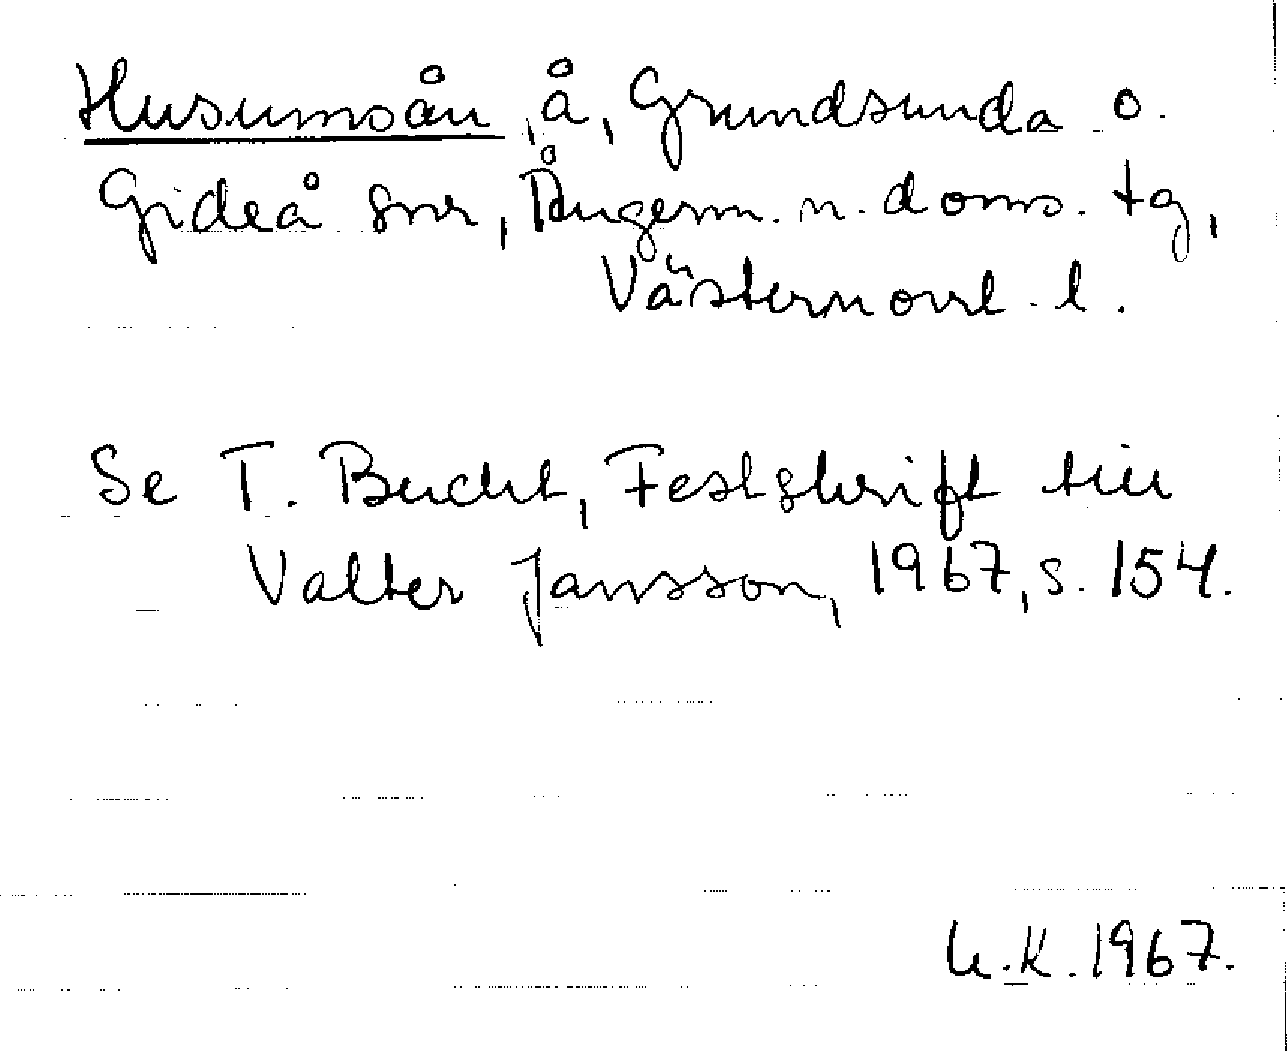 Husumsån, å, Grundsunda o.
Gideå snr, Ångerm. n. doms. tg,
Västernorrl. l.
Se T. Bucht, Festskrift till
Valter Jansson, 1967, s. 154.
U.K. 1967.